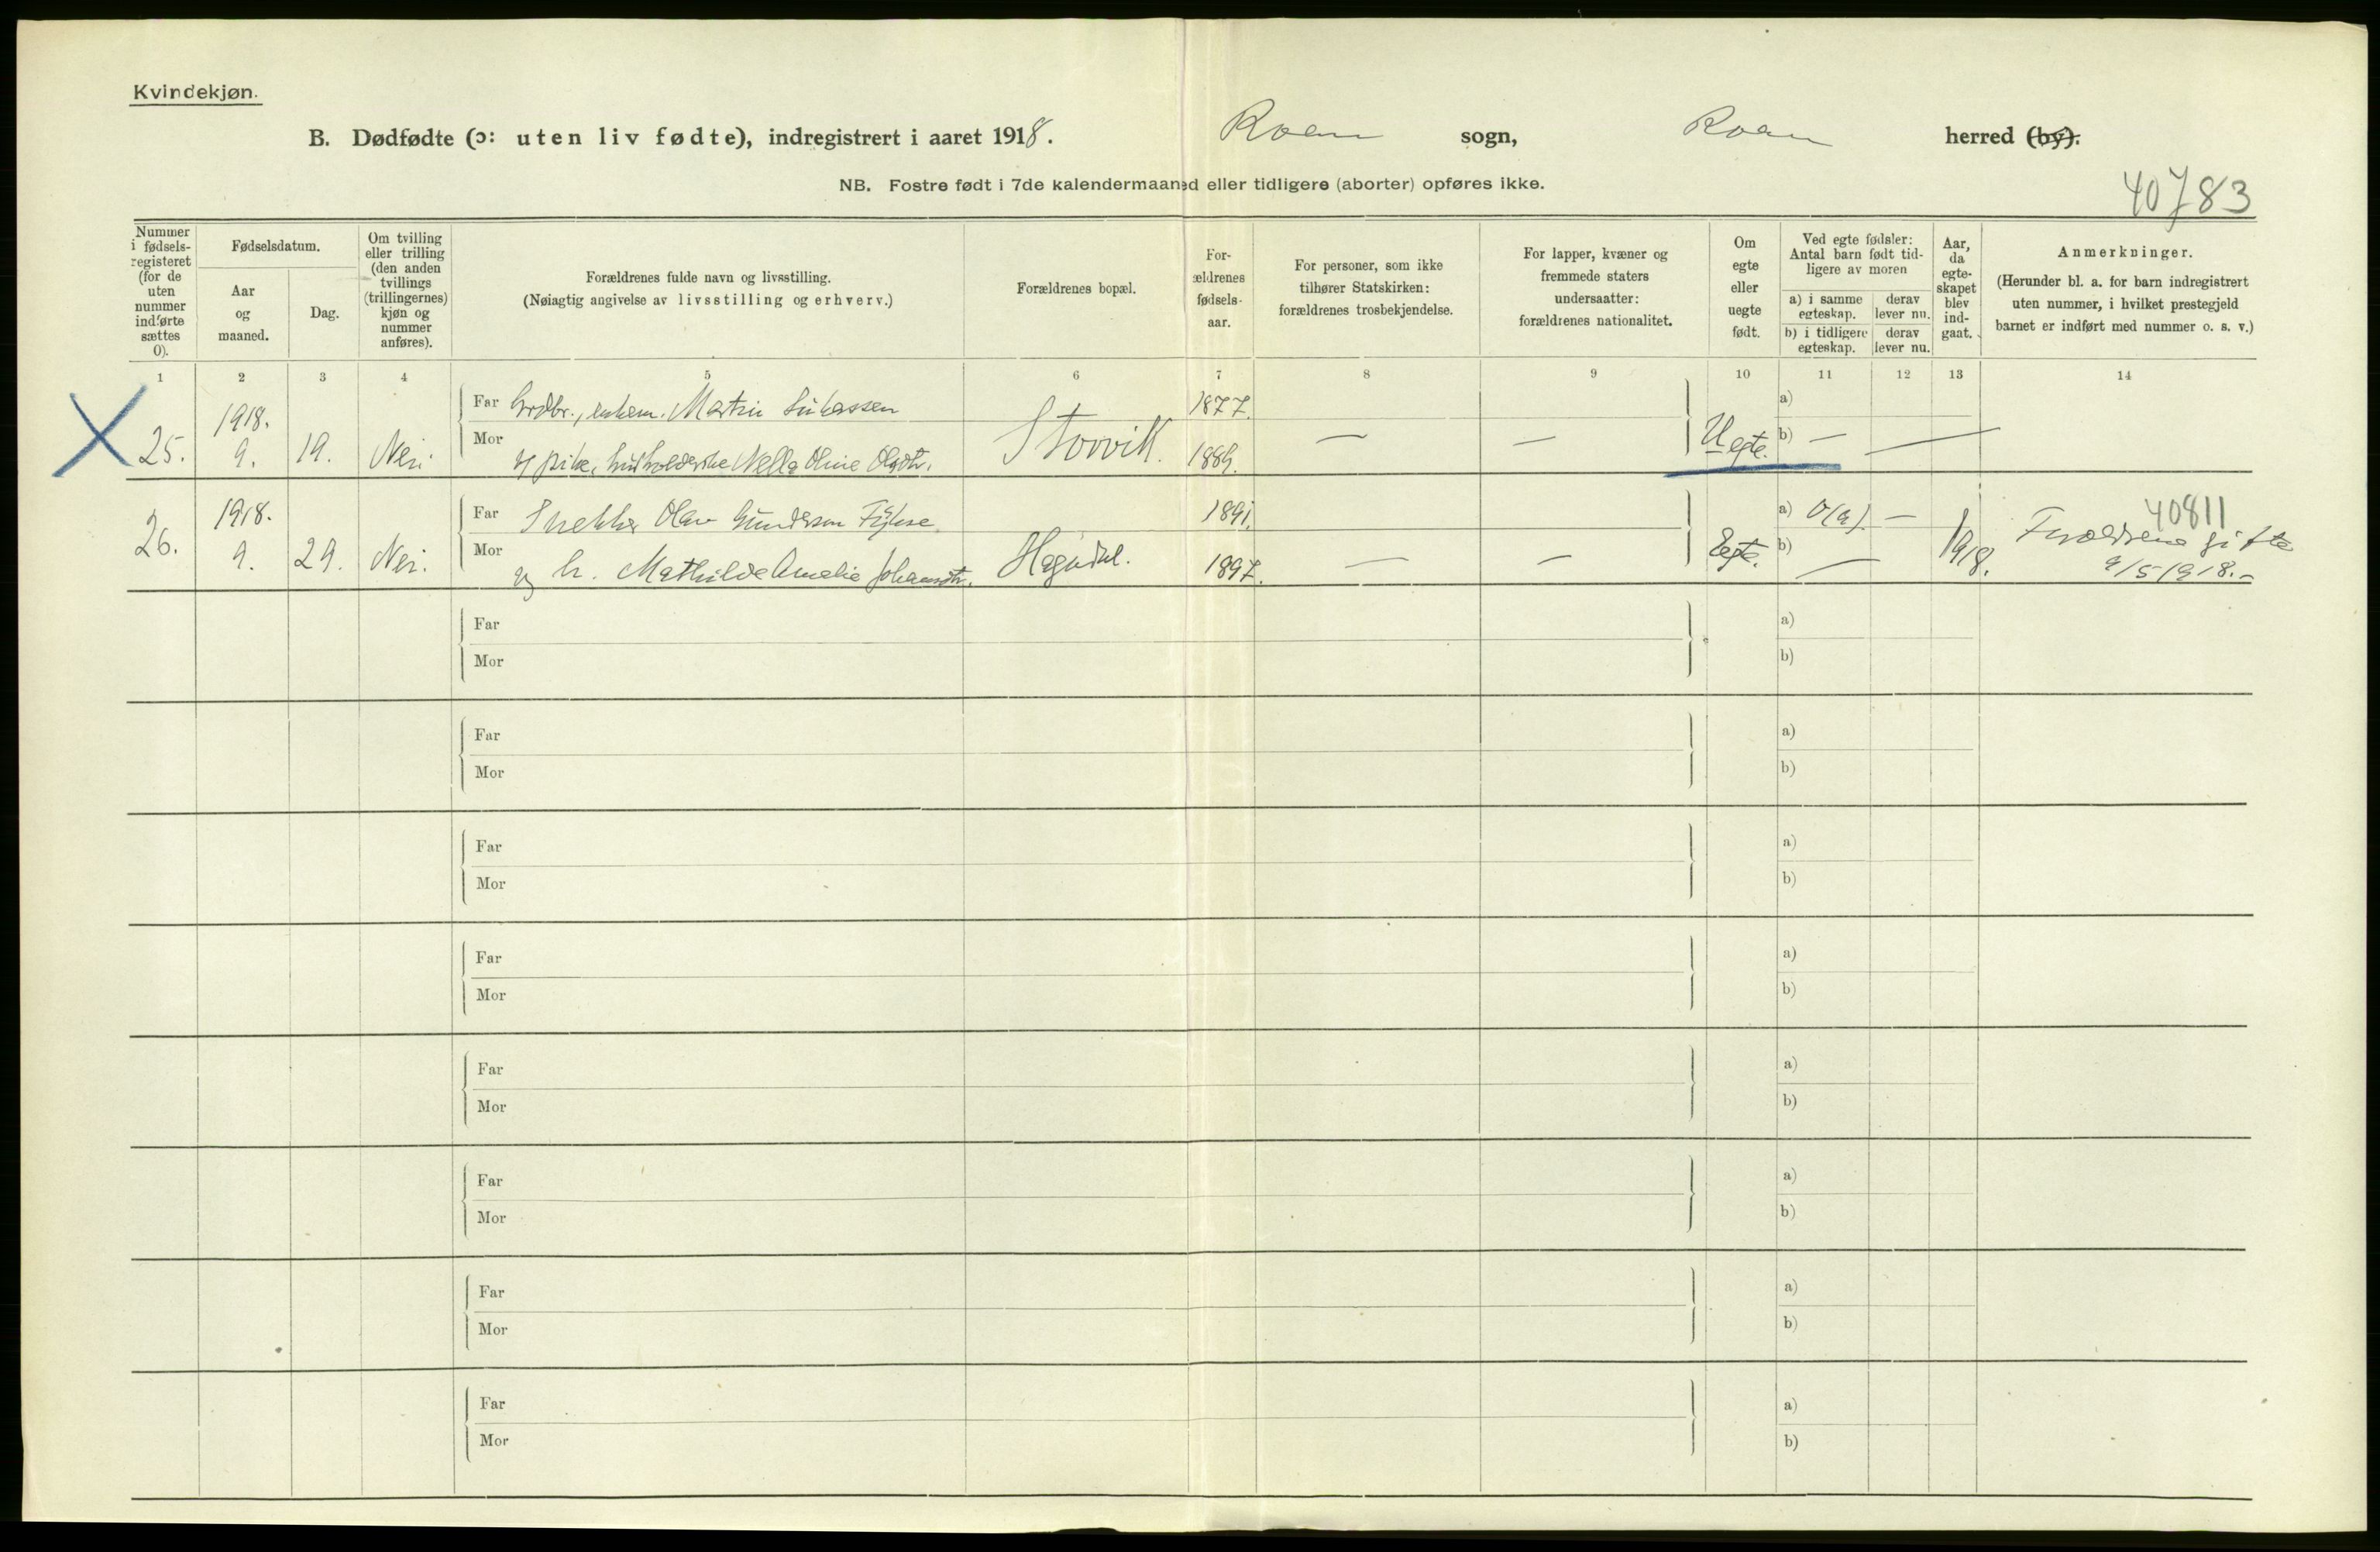 Kvindekjøn.
B. Dødfødte (ɔ: uten liv fødte), indregistrert i aaret 1918. Roan sogn, Roan herred (by).
NB. Fostre født i 7de kalendermaaned eller tidligere (aborter) opføres ikke.
40783
Nummer i fødsels-registeret (for de uten nummer indførte sættes 0).
Fødselsdatum.
Aar og maaned.
Dag.
Om tvilling eller trilling (den anden tvillings (trillingernes) kjøn og nummer anføres).
Forældrenes fulde navn og livsstilling.
(Nøiagtig angivelse av livsstilling og erhverv.)
Forældrenes bopæl.
For-ældrenes fødsels-aar.
For personer, som ikke tilhører Statskirken: forældrenes trosbekjendelse.
For lapper, kvæner og fremmede staters undersaatter: forældrenes nationalitet.
Om egte eller uegte født.
Ved egte fødsler: Antal barn født tid-ligere av moren
a) i samme egteskap.
derav lever nu.
b) i tidligere egteskap.
derav lever nu.
Aar, da egte-skapet blev ind-gaat.
Anmerkninger.
(Herunder bl. a. for barn indregistrert uten nummer, i hvilket prestegjeld barnet er indført med nummer o. s. v.)
1 2 3 4 5 6 7 8 9 10 11 12 13 14
X 25. 1918. 9. 19. Nei.
Far Grdbr., enkem. Martin Lukassen 1877.
Mor og pike, husholderske Nella Oline Olsdtr. Storvik. 188 — — Uegte.
a)
b) — —
26. 1918. 9. 29. Nei.
Far Snekker Olav Gunderson 1891.
Mor og h. Mathilde Amelie Johansdtr. Hagadal. 1897. — — Egte.
a) 0(a) —
b) —
1918.
40811
Forældrene gifte
9/5 1918.-
Far
Mor
a)
b)
Far
Mor
a)
b)
Far
Mor
a)
b)
Far
Mor
a)
b)
Far
Mor
a)
b)
Far
Mor
a)
b)
Far
Mor
a)
b)
Far
Mor
a)
b)